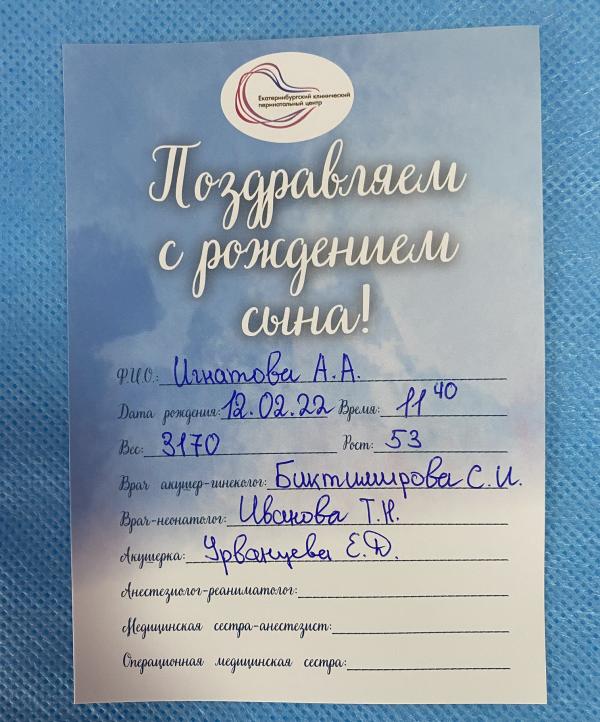 Екатеринбургский клинический
перинатальный центр
Поздравляем
с рождением
сына!
Ф.И.О.: Игнатова А.А.
Дата рождения: 12.02.22 Время: 11 40
Вес: 3170 Рост: 53
Врач акушер-гинеколог: Биктимирова С.И.
Врач-неонатолог: Иванова Т.Н.
Акушерка: Урванцева Е.Д.
Анестезиолог-реаниматолог:
Медицинская сестра-анестезист:
Операционная медицинская сестра: